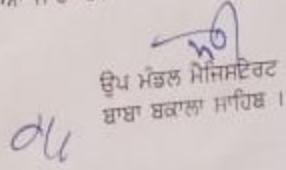 ਉਪ ਮੰਡਲ ਮੈਜਿਸਟਰੇਟ
ਬਾਬਾ ਬਕਾਲਾ ਸਾਹਿਬ ।